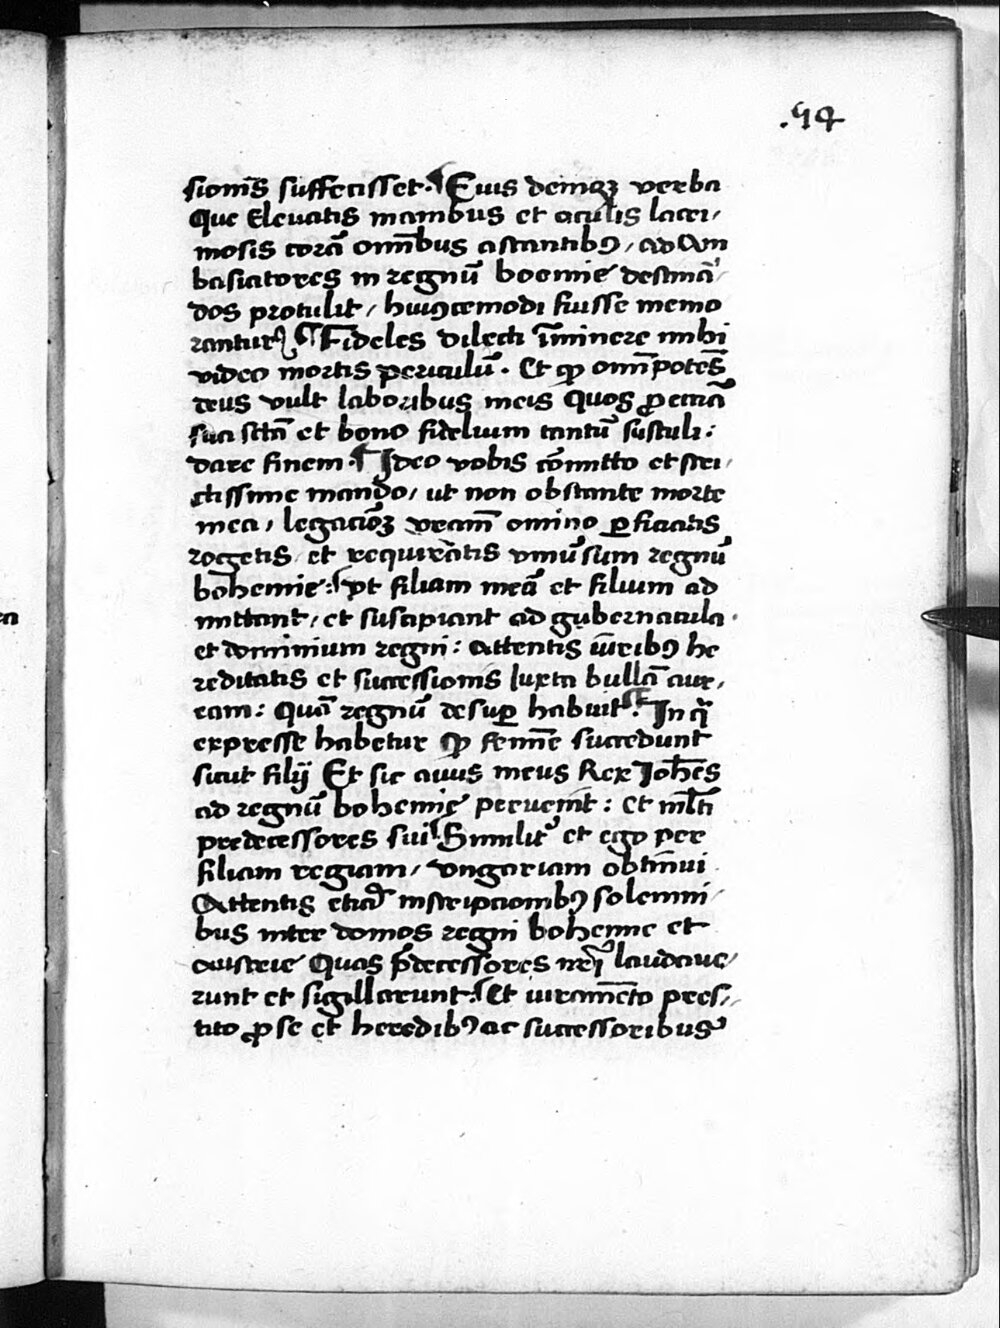 .54
sionīs suffecisset. ¶ Eius deniqꝫ verba
Que Elevatis manibus et oculis lacri/
mosis corā oīnibus astantibꝰ, ad Am
basiatores in regnū boemie destinā/
dos protulit, huiꝰcemodi fuisse memo
rantur ¶ Fideles dilecti īminere mihi
video mortis periculū. Et ꝙ oīnipotēs
deus vult laboribus meis Quos ꝓ etiā
sua sctā et bono fidelium tantū sustuli:
dare finem. ¶ Ideo vobis cōmitto et stri/
ctissime mando, ut non obstante morte
mea, legacioꝫ vr̄am omīno ꝑficiatis
rogetis et requiratis vniūsum regnū
bohemie: ¶ vt filiam meā et filium ad
mittant, et suscipiant ad gubernacula.
et dominium regni: Attentis iuribꝰ he
reditatis et successionis Iuxta bullā aur/
eam: Quā regnū desuꝑ habuit. ¶ In q̄
expresse habetur ꝙ femīe succedunt
sicut filij Et sic avus meus Rex Johēs
ad regnū bohemie pervenit: et mlti
predecessores sui ¶ Similitˀ et ego per
filiam regiam, vngariam obtinui
Attentis etiā inscriptionibꝰ solemni/
bus inter domos regni bohemie et
austrie Quas p̄decessores nr̄i laudave/
runt et sigillarunt. ¶ Et iuramēto pres/
tito ꝓ se et heredibꝰ ac successoribus